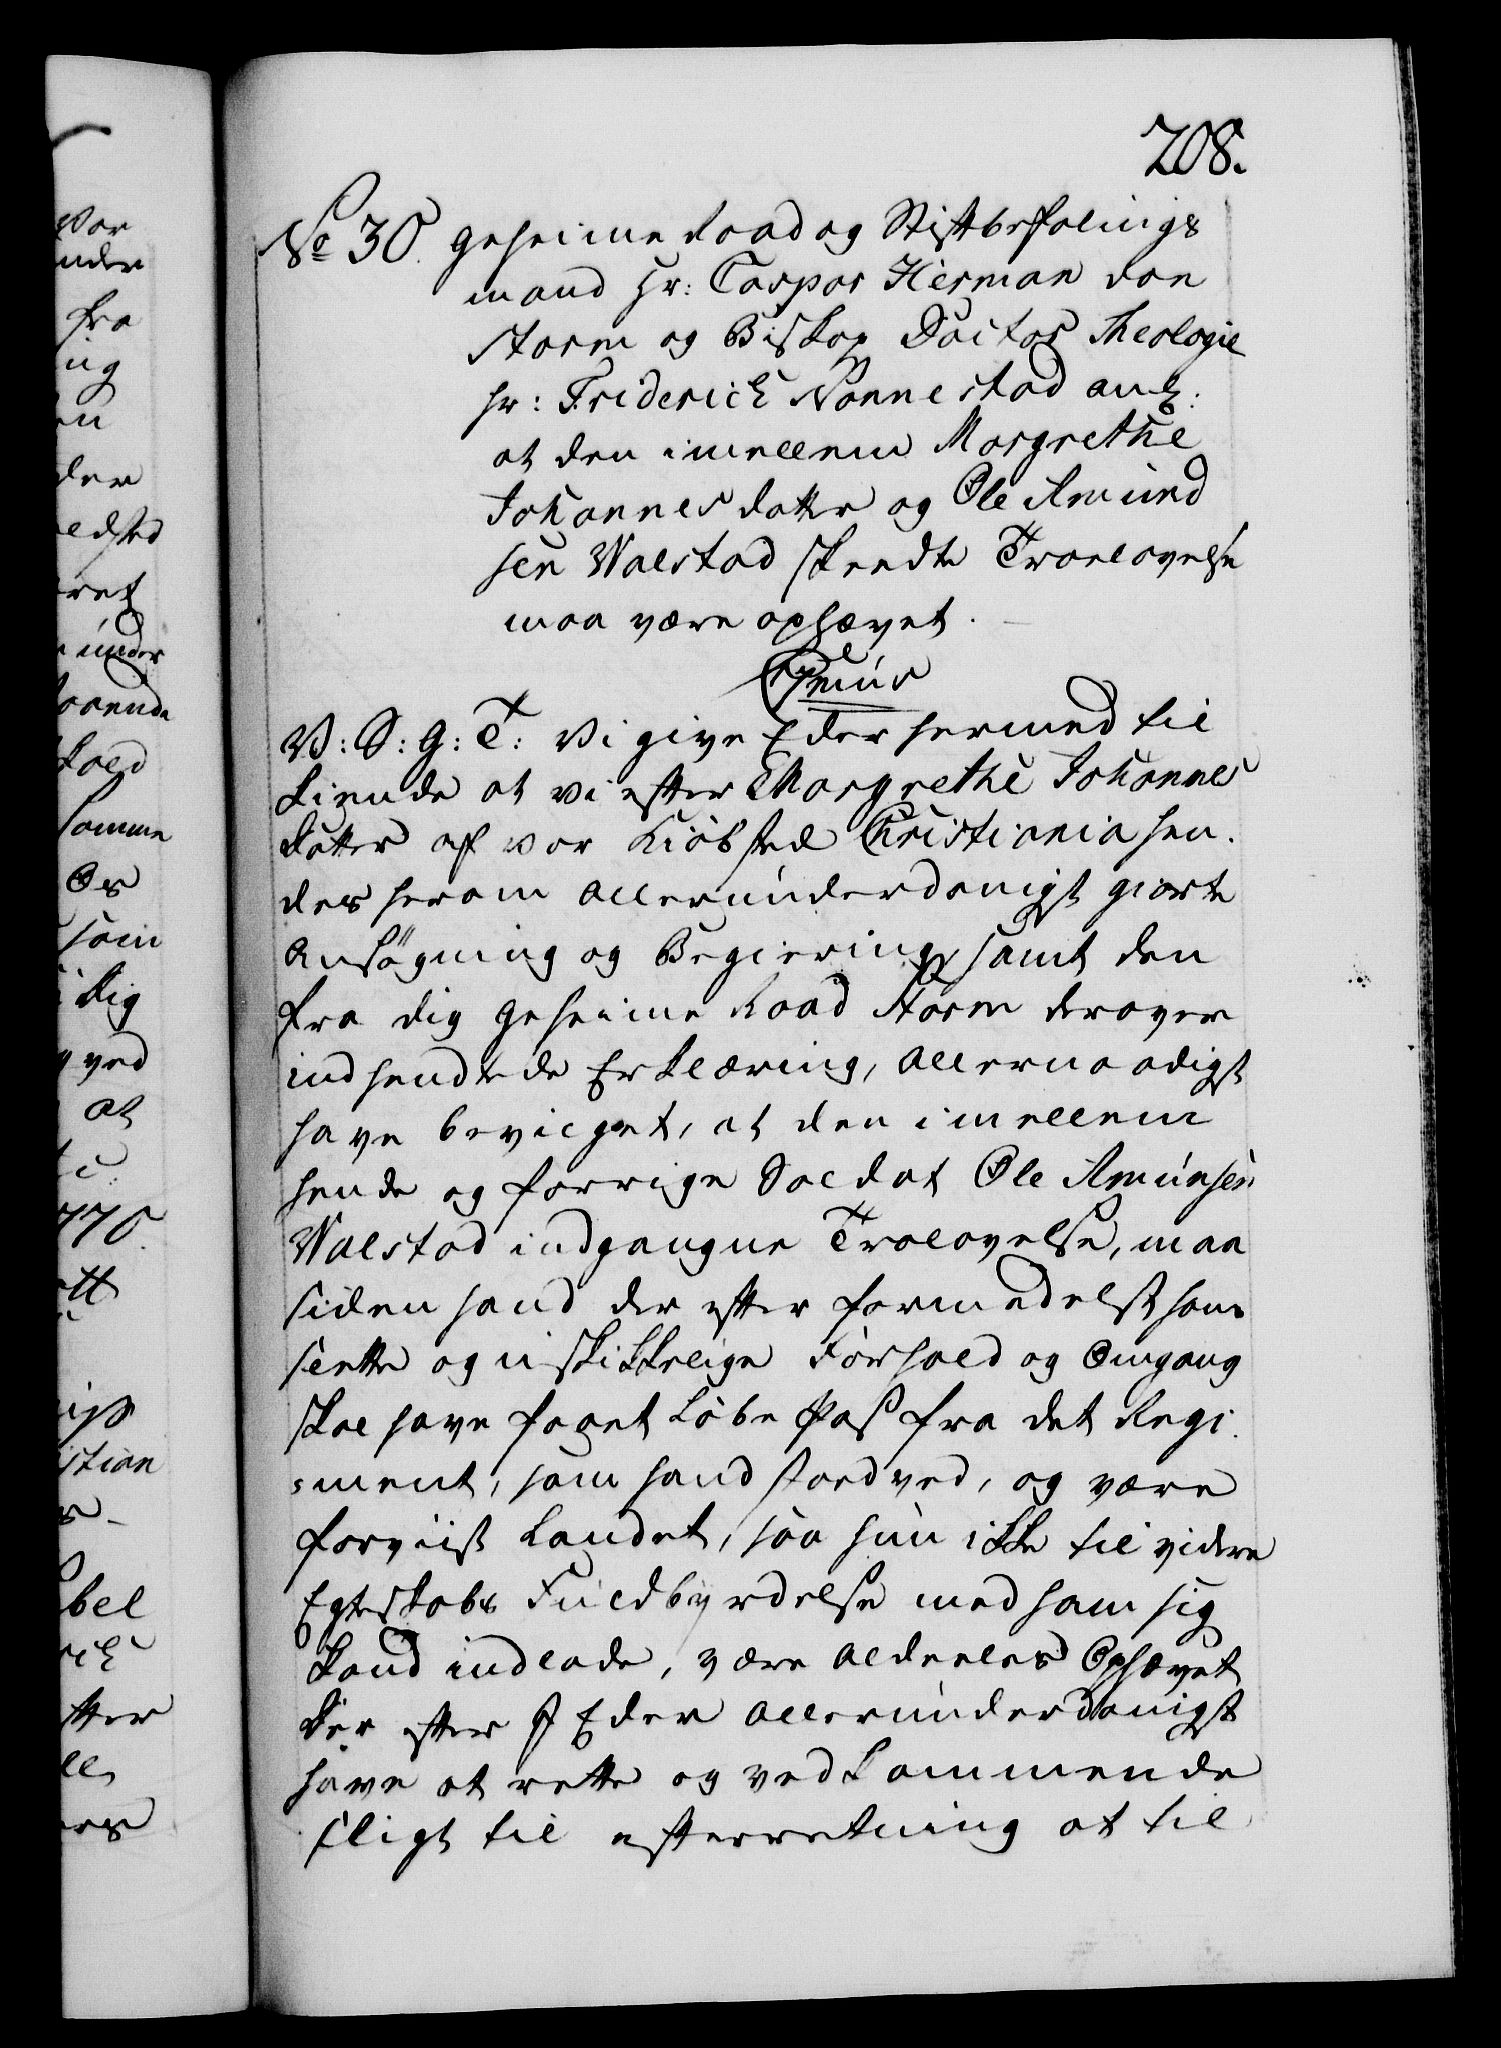 208.
No 30. Geheime Raad og Stiftbefalings
mand Hr: Caspar Herman von
Storm og Biskop Doctor Theologie
Hr: Friderich Nannestad anl:
at den imellem Margrethe
Johannesdatter og Ole Amund
sen Walstad skeedte Troelovelse
maa være ophævet.
C7mus
V: S: G: T: Vi give Eder hermed til
kiende at vi efter Margrethe Johannes
datter af vor Kiøbsted Christiania hen-
des herom allerunderdanigst giorte
Ansøgning og Begiering, samt den
fra dig Geheime Raad Storm derover
indsendtede Erklæring, allernaadigst
have bevilget, at den imellem
hende og forrige Soldat Ole Amunsen
Walstad indgangne Trolovelse, maa
siden hand der efter formedelst hans
slette og uskikkelige Forhold og Omgang
skal have faaet Løbe Pas fra det Regi-
=ment, som hand stoed ved, og være
forviist Landet, saa hun ikke til videre
Egteskabs Fuldbyrdelse med ham sig
kand indlade, være aldeeles Ophævet
Der efter I Eder allerunderdanigst
have at rette og vedkommende
sligt til efterretning at til
Vor
nden
fra
ing
en
der
edsted
ret
under
kold
samme
Os
som
dig
ved
at
770.
stian
bel
rich
tter